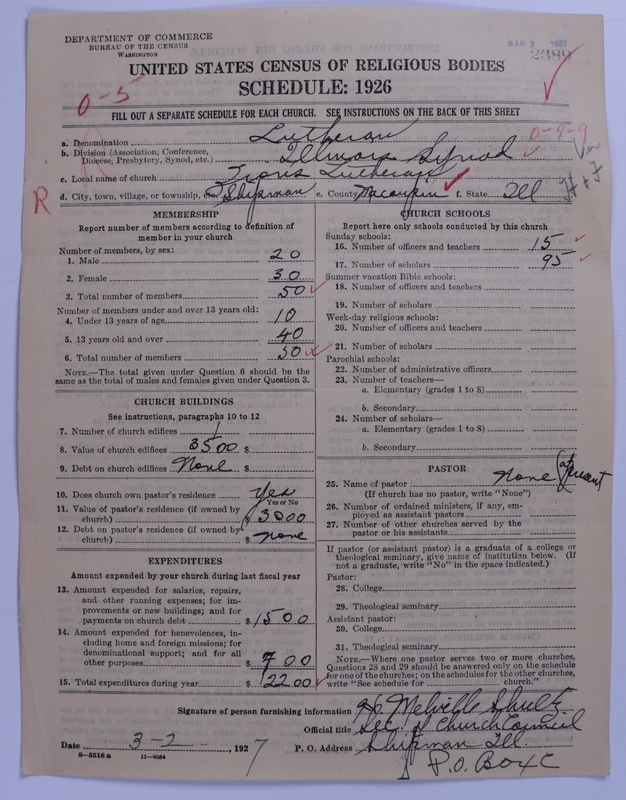 DEPARTMENT OF COMMERCE
BUREAU OF THE CENSUS
WASHINGTON
MAR 7 1927
2389
UNITED STATES CENSUS OF RELIGIOUS BODIES
SCHEDULE: 1926
0-5
FILL OUT A SEPARATE SCHEDULE FOR EACH CHURCH. SEE INSTRUCTIONS ON THE BACK OF THIS SHEET
a. Denomination Lutheran
0-9-9
b. Division (Association, Conference, Diocese, Presbytery, Synod, etc.) Illinois Synod
c. Local name of church Zions Lutheran
R
d. City, town, village, or township, etc. Shipman e. County Macoupin f. State Ill
MEMBERSHIP
Report number of members according to definition of member in your church
Number of members, by sex:
1. Male 20
2. Female 30
3. Total number of members 50
Number of members under and over 13 years old:
4. Under 13 years of age 10
5. 13 years old and over 40
6. Total number of members 50
NOTE.—The total given under Question 6 should be the same as the total of males and females given under Question 3.
CHURCH BUILDINGS
See instructions, paragraphs 10 to 12
7. Number of church edifices 1
8. Value of church edifices 3500 $
9. Debt on church edifices None $
10. Does church own pastor's residence Yes
Yes or No
11. Value of pastor's residence (if owned by church) $3000
12. Debt on pastor's residence (if owned by church) $ None
EXPENDITURES
Amount expended by your church during last fiscal year
13. Amount expended for salaries, repairs, and other running expenses; for improvements or new buildings; and for payments on church debt $1500
14. Amount expended for benevolences, including home and foreign missions; for denominational support; and for all other purposes $700
15. Total expenditures during year $2200
CHURCH SCHOOLS
Report here only schools conducted by this church
Sunday schools:
16. Number of officers and teachers 15
17. Number of scholars 95
Summer vacation Bible schools:
18. Number of officers and teachers
19. Number of scholars
Week-day religious schools:
20. Number of officers and teachers
21. Number of scholars
Parochial schools:
22. Number of administrative officers
23. Number of teachers—
a. Elementary (grades 1 to 8)
b. Secondary
24. Number of scholars—
a. Elementary (grades 1 to 8)
b. Secondary
PASTOR
25. Name of pastor None (at present
(If church has no pastor, write "None")
26. Number of ordained ministers, if any, employed as assistant pastors
27. Number of other churches served by the pastor or his assistants
If pastor (or assistant pastor) is a graduate of a college or theological seminary, give name of institution below. (If not a graduate, write "No" in the space indicated.)
Pastor:
28. College
29. Theological seminary
Assistant pastor:
30. College
31. Theological seminary
NOTE.—Where one pastor serves two or more churches, Questions 28 and 29 should be answered only on the schedule for one of the churches; on the schedules for the other churches, write "See schedule for church."
Signature of person furnishing information Melville Shultz
Official title Sec. of Church Council
Date 3-2, 1927 P. O. Address Shipman Ill.
8-5518 a 11-9054
P.O. Box C